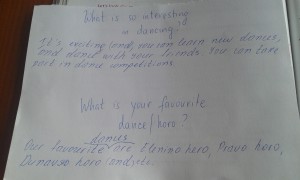 What is so interesting
in dancing?
It's exciting and, you can learn new dances,
and dance with your friends. You can take
part in dance competitions.
What is your favourite
dance/horo?
dances
Our favourite are Elenino horo, Pravo horo,
Dunavsko horo and